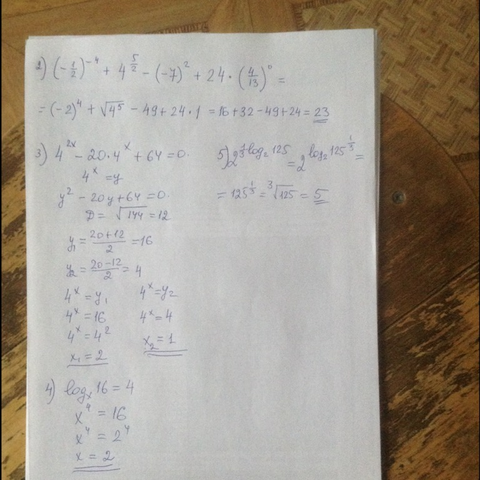 2) (-1/2)^-4 + 4^(5/2) - (-7)^2 + 24 · (4/13)^0 =
= (-2)^4 + √4^5 - 49 + 24 · 1 = 16 + 32 - 49 + 24 = 23
3) 4^2x - 20 · 4^x + 64 = 0.
4^x = y
y^2 - 20y + 64 = 0.
D = √144 = 12
y1 = (20+12)/2 = 16
y2 = (20-12)/2 = 4
4^x = y1
4^x = 16
4^x = 4^2
x1 = 2
4^x = y2
4^x = 4
x2 = 1
4) log_x 16 = 4
x^4 = 16
x^4 = 2^4
x = 2
5) 2^(1/3 log_2 125) = 2^(log_2 125^(1/3)) =
= 125^(1/3) = ³√125 = 5